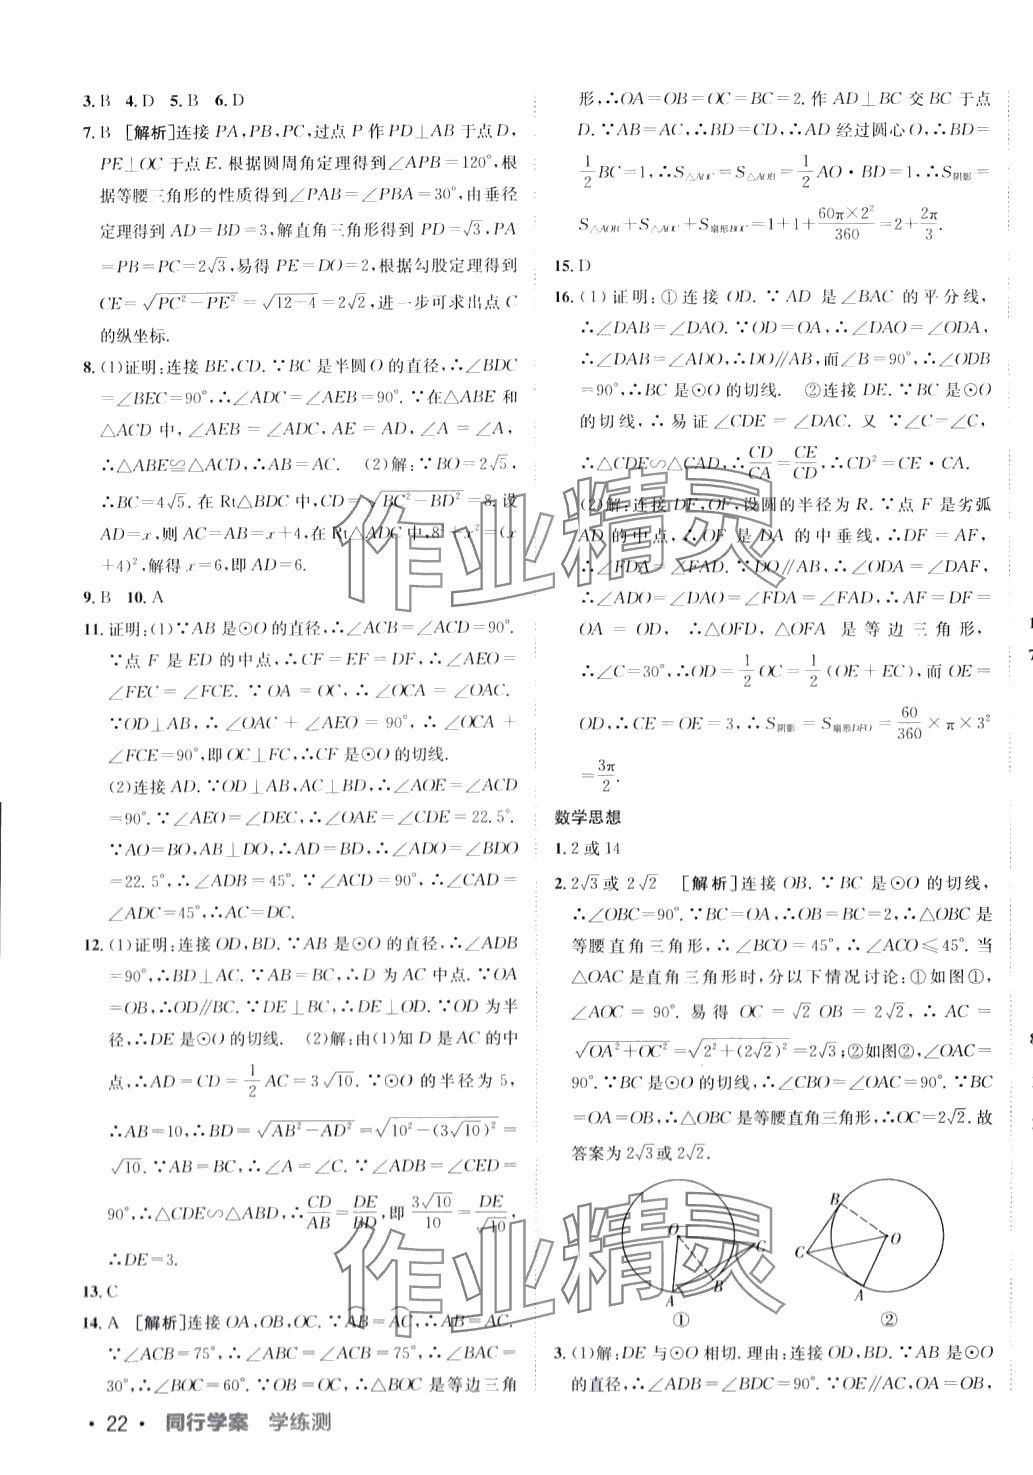 3. B  4. D  5. B  6. D
7. B [解析]连接 PA,PB,PC,过点 P 作 PD⊥AB 于点 D,
PE⊥OC 于点 E. 根据圆周角定理得到∠APB=120°,根
据等腰三角形的性质得到∠PAB=∠PBA=30°,由垂径
定理得到 AD=BD=3,解直角三角形得到 PD=√3,PA
=PB=PC=2√3,易得 PE=DO=2,根据勾股定理得到
CE=√(PC²-PE²)=√(12-4)=2√2,进一步可求出点 C
的纵坐标.
8. (1)证明:连接 BE,CD. ∵BC 是半圆 O 的直径,∴∠BDC
=∠BEC=90°,∴∠ADC=∠AEB=90°. ∵在△ABE 和
△ACD 中,∠AEB=∠ADC,AE=AD,∠A=∠A,
∴△ABE≌△ACD,∴AB=AC. (2)解:∵BO=2√5,
∴BC=4√5. 在 Rt△BDC 中,CD=√(BC²-BD²)=8. 设
AD=x,则 AC=AB=x+4,在 Rt△ADC 中,8²+x²=(x
+4)²,解得 x=6,即 AD=6.
9. B  10. A
11. 证明:(1)∵AB 是⊙O 的直径,∴∠ACB=∠ACD=90°.
∵点 F 是 ED 的中点,∴CF=EF=DF,∴∠AEO=
∠FEC=∠FCE. ∵OA=OC,∴∠OCA=∠OAC.
∵OD⊥AB,∴∠OAC+∠AEO=90°,∴∠OCA+
∠FCE=90°,即 OC⊥FC,∴CF 是⊙O 的切线.
(2)连接 AD. ∵OD⊥AB,AC⊥BD,∴∠AOE=∠ACD
=90°. ∵∠AEO=∠DEC,∴∠OAE=∠CDE=22.5°.
∵AO=BO,AB⊥DO,∴AD=BD,∴∠ADO=∠BDO
=22.5°,∴∠ADB=45°. ∵∠ACD=90°,∴∠CAD=
∠ADC=45°,∴AC=DC.
12. (1)证明:连接 OD,BD. ∵AB 是⊙O 的直径,∴∠ADB
=90°,∴BD⊥AC. ∵BA=BC,∴D 为 AC 中点. ∵OA
=OB,∴OD∥BC. ∵DE⊥BC,∴DE⊥OD. ∵OD 为半
径,∴DE 是⊙O 的切线. (2)解:由(1)知 D 是 AC 的中
点,∴AD=CD=1/2 AC=3√10. ∵⊙O 的半径为 5,
∴AB=10,∴BD=√(AB²-AD²)=√(10²-(3√10)²)=
√10. ∵AB=BC,∴∠A=∠C. ∵∠ADB=∠CED=
90°,∴△CDE∽△ABD,∴CD/AB=DE/BD,即 3√10/10=DE/√10,
∴DE=3.
13. C
14. A [解析]连接 OA,OB,OC. ∵AB=AC,∴AB=AC.
∵∠ACB=75°,∴∠ABC=∠ACB=75°,∴∠BAC=
30°,∴∠BOC=60°. ∵OB=OC,∴△BOC 是等边三角
• 22 • 同行学案 学练测
形,∴OA=OB=OC=BC=2. 作 AD⊥BC 交 BC 于点
D. ∵AB=AC,∴BD=CD,∴AD 经过圆心 O,∴BD=
1/2 BC=1,∴S△AOC=S△AOB=1/2 AO·BD=1,∴S阴影=
S△AOB+S△AOC+S扇形BOC=1+1+60π×2²/360=2+2π/3.
15. D
16. (1)证明:①连接 OD. ∵AD 是∠BAC 的平分线,
∴∠DAB=∠DAO. ∵OD=OA,∴∠DAO=∠ODA,
∴∠DAB=∠ADO,∴DO∥AB,而∠B=90°,∴∠ODB
=90°,∴BC 是⊙O 的切线. ②连接 DE. ∵BC 是⊙O
的切线,∴易证∠CDE=∠DAC. 又∵∠C=∠C,
∴△CDE∽△CAD,∴CD/CA=CE/CD,∴CD²=CE·CA.
(2)解:连接 DF,OF,设圆的半径为 R. ∵点 F 是劣弧
AD 的中点,∴OF 是 DA 的中垂线,∴DF=AF,
∴∠FDA=∠FAD. ∵DO∥AB,∴∠ODA=∠DAF,
∴∠ADO=∠DAO=∠FDA=∠FAD,∴AF=DF=
OA=OD,∴△OFD,△OFA 是等边三角形,
∴∠C=30°,∴OD=1/2 OC=1/2(OE+EC),而 OE=
OD,∴CE=OE=3,∴S阴影=S扇形DFO=60/360×π×3²
=3π/2.
数学思想
1. 2 或 14
2. 2√3或 2√2 [解析]连接 OB. ∵BC 是⊙O 的切线,
∴∠OBC=90°. ∵BC=OA,∴OB=BC=2,∴△OBC 是
等腰直角三角形,∴∠BCO=45°,∴∠ACO≤45°. 当
△OAC 是直角三角形时,分以下情况讨论:①如图①,
∠AOC=90°. 易得 OC=√2 OB=2√2,∴AC=
√(OA²+OC²)=√(2²+(2√2)²)=2√3;②如图②,∠OAC=
90°. ∵BC 是⊙O 的切线,∴∠CBO=∠OAC=90°. ∵BC
=OA=OB,∴△OBC 是等腰直角三角形,∴OC=2√2. 故
答案为 2√3或 2√2.
O C B A ①
B C O A ②
3. (1)解:DE 与⊙O 相切. 理由:连接 OD,BD. ∵AB 是⊙O
的直径,∴∠ADB=∠BDC=90°. ∵OE∥AC,OA=OB,
作业精灵
作业精灵